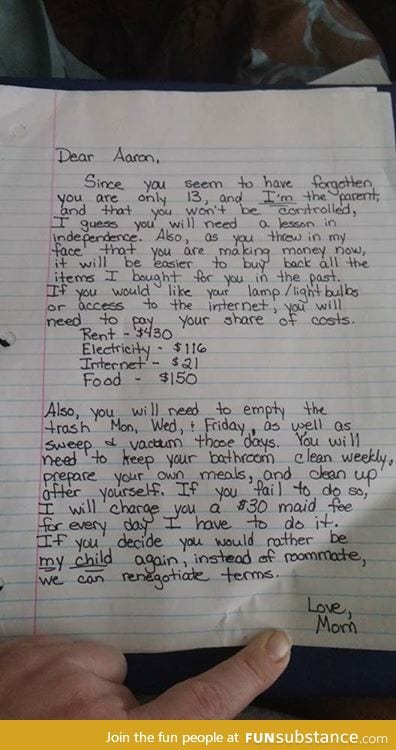 Dear Aaron,
Since you seem to have forgotten
you are only 13, and I'm the parent,
and that you won't be controlled,
I guess you will need a lesson in
independence. Also, as you threw in my
face that you are making money now,
it will be easier to buy back all the
items I bought for you in the past.
If you would like your lamp/lightbulbs
or access to the internet, you will
need to pay your share of costs.
Rent - $430
Electricity - $116
Internet - $21
Food - $150
Also, you will need to empty the
trash Mon, Wed, & Friday, as well as
sweep & vacuum those days. You will
need to keep your bathroom clean weekly,
prepare your own meals, and clean up
after yourself. If you fail to do so,
I will charge you a $30 maid fee
for every day I have to do it.
If you decide you would rather be
my child again, instead of roommate,
we can renegotiate terms.
Love,
Mom
Join the fun people at FUNsubstance.com